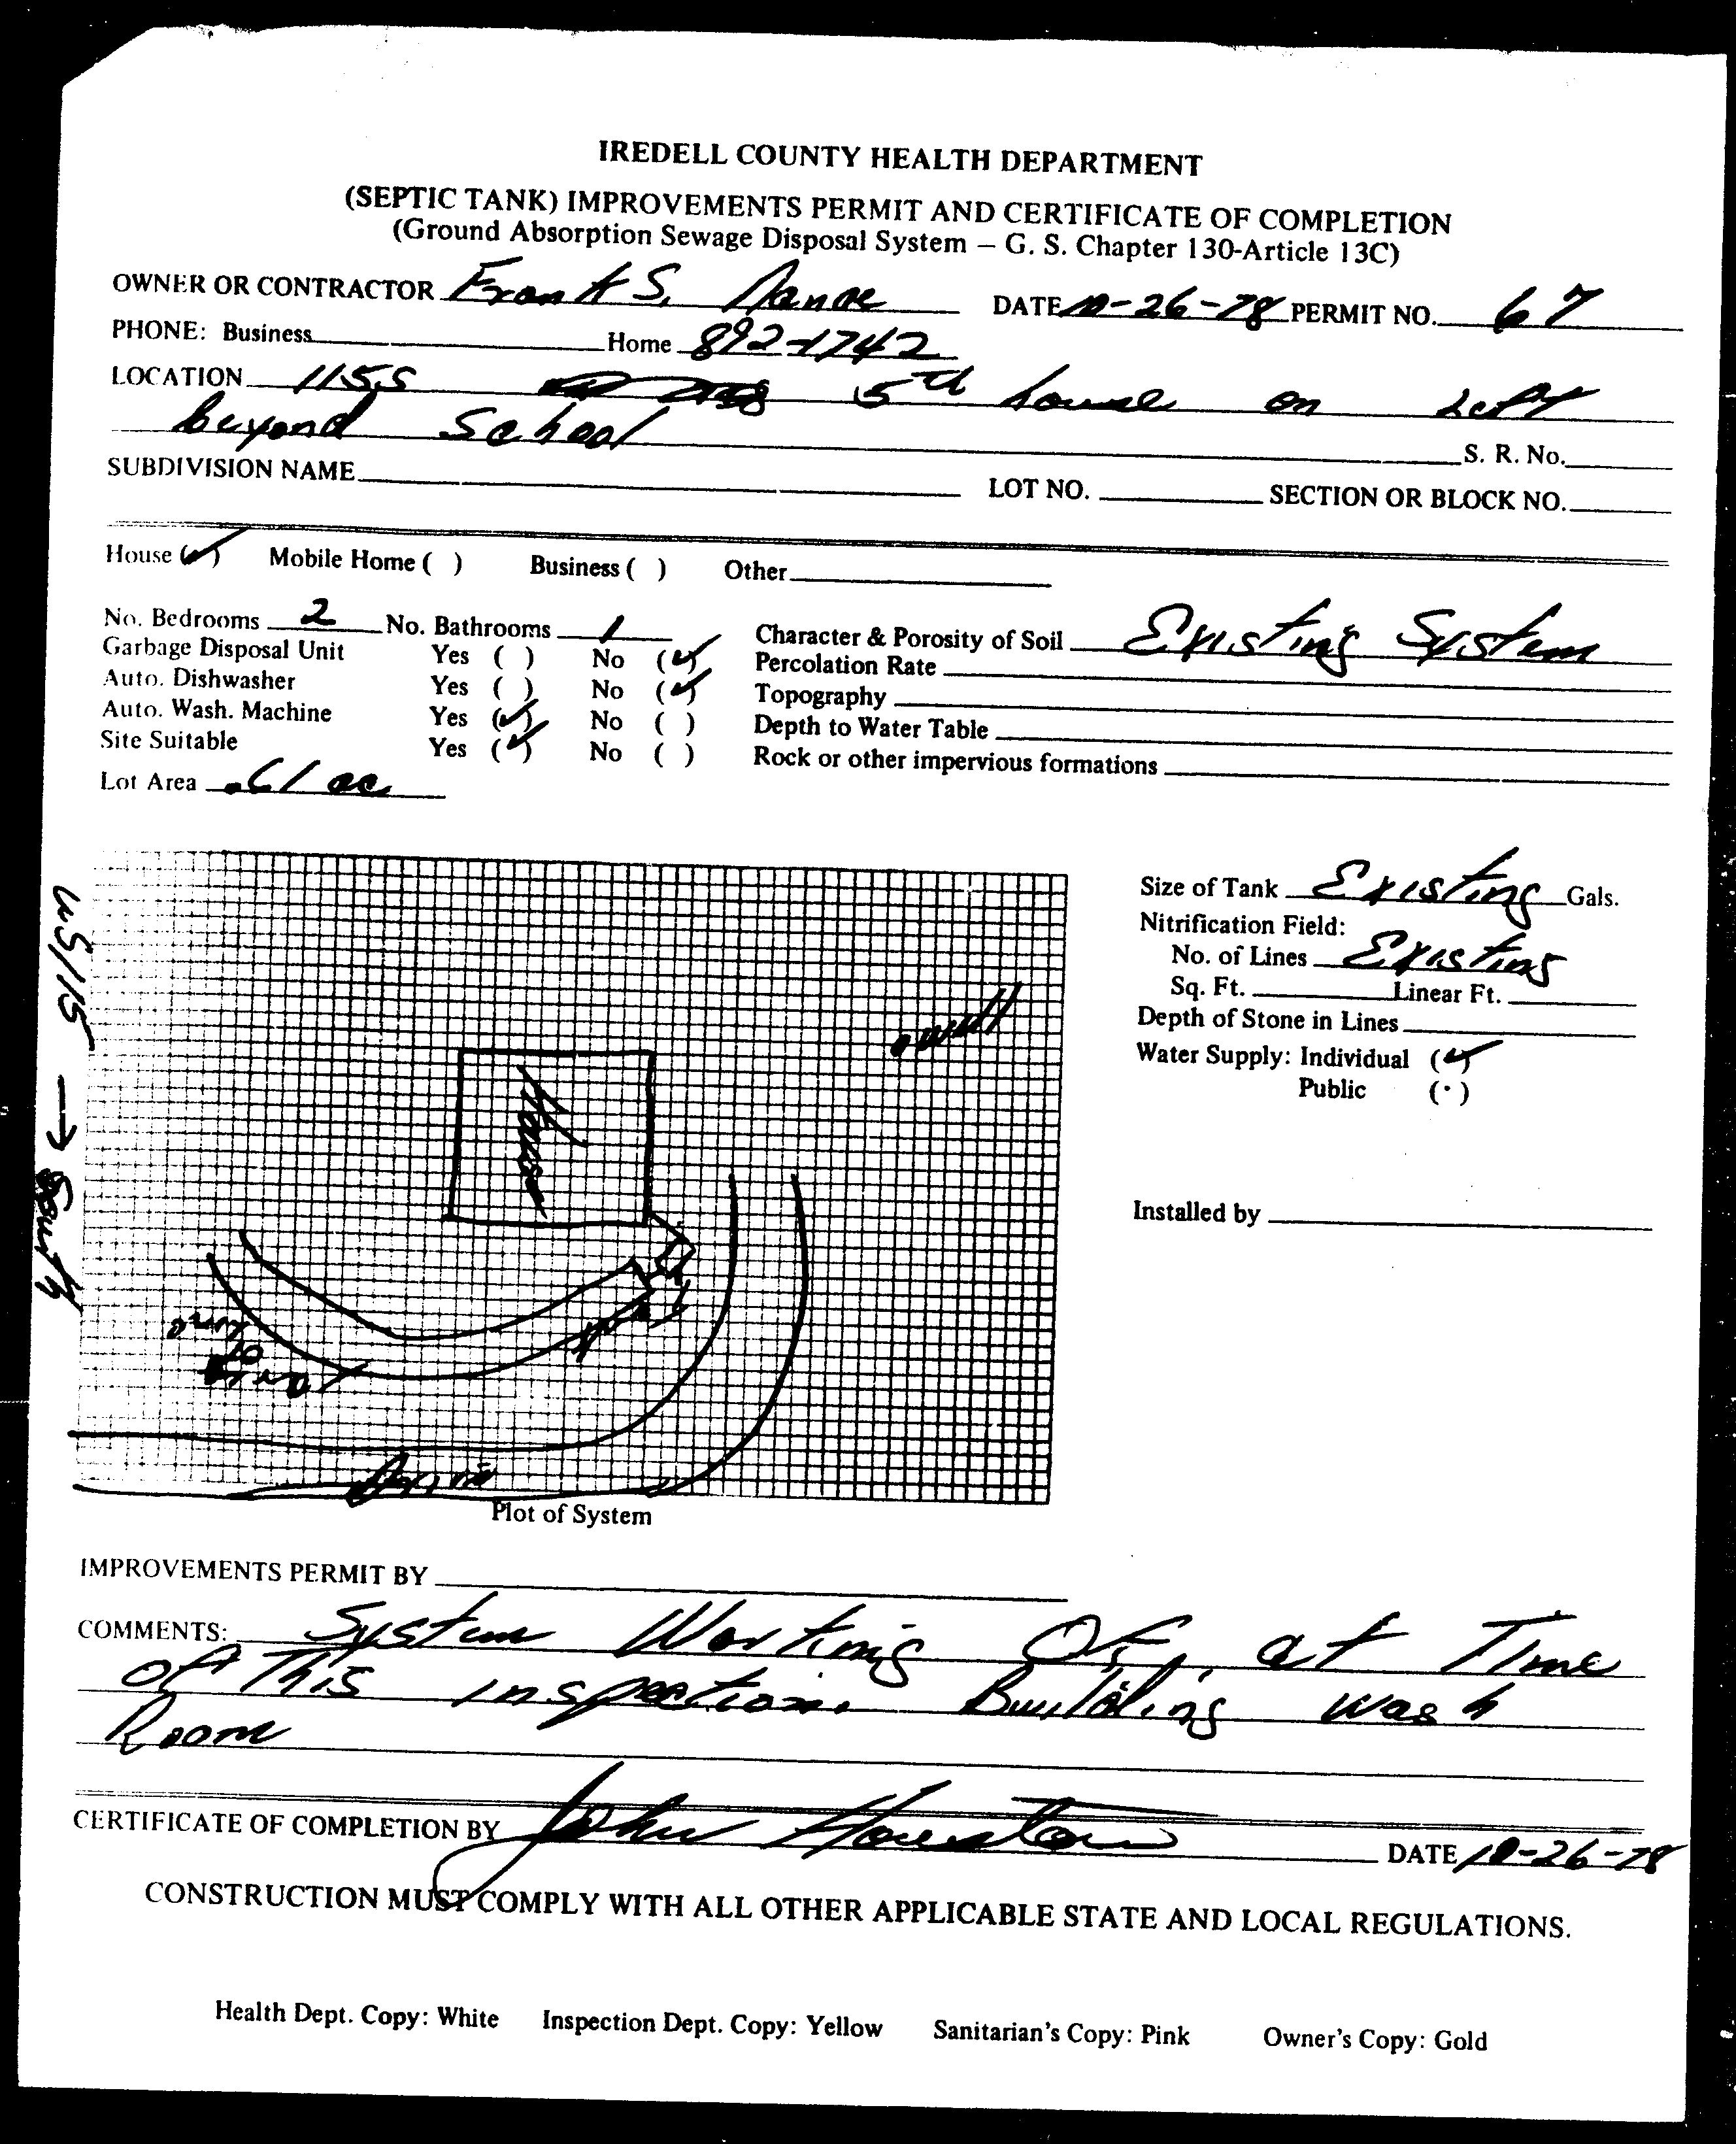 IREDELL COUNTY HEALTH DEPARTMENT
(SEPTIC TANK) IMPROVEMENTS PERMIT AND CERTIFICATE OF COMPLETION
(Ground Absorption Sewage Disposal System – G. S. Chapter 130-Article 13C)
OWNER OR CONTRACTOR Frank S. DATE 10-26-78 PERMIT NO. 67
PHONE: Business Home 892-1742
LOCATION 115 S 5th house on Left
beyond School S. R. No.
SUBDIVISION NAME LOT NO. SECTION OR BLOCK NO.
House (✓) Mobile Home ( ) Business ( ) Other
No. Bedrooms 2 No. Bathrooms 1 Character & Porosity of Soil Existing System
Garbage Disposal Unit Yes ( ) No (✓) Percolation Rate
Auto. Dishwasher Yes ( ) No (✓) Topography
Auto. Wash. Machine Yes (✓) No ( ) Depth to Water Table
Site Suitable Yes (✓) No ( ) Rock or other impervious formations
Lot Area .61 ac
Size of Tank Existing Gals.
Nitrification Field:
No. of Lines Existing
Sq. Ft. Linear Ft.
Depth of Stone in Lines
Water Supply: Individual (✓)
Public ( )
Installed by
US 115 → South
well
House
Drive
Plot of System
IMPROVEMENTS PERMIT BY
COMMENTS: System Working OK at Time
of This inspection. Building wash
Room
CERTIFICATE OF COMPLETION BY John Houston DATE 10-26-78
CONSTRUCTION MUST COMPLY WITH ALL OTHER APPLICABLE STATE AND LOCAL REGULATIONS.
Health Dept. Copy: White Inspection Dept. Copy: Yellow Sanitarian's Copy: Pink Owner's Copy: Gold